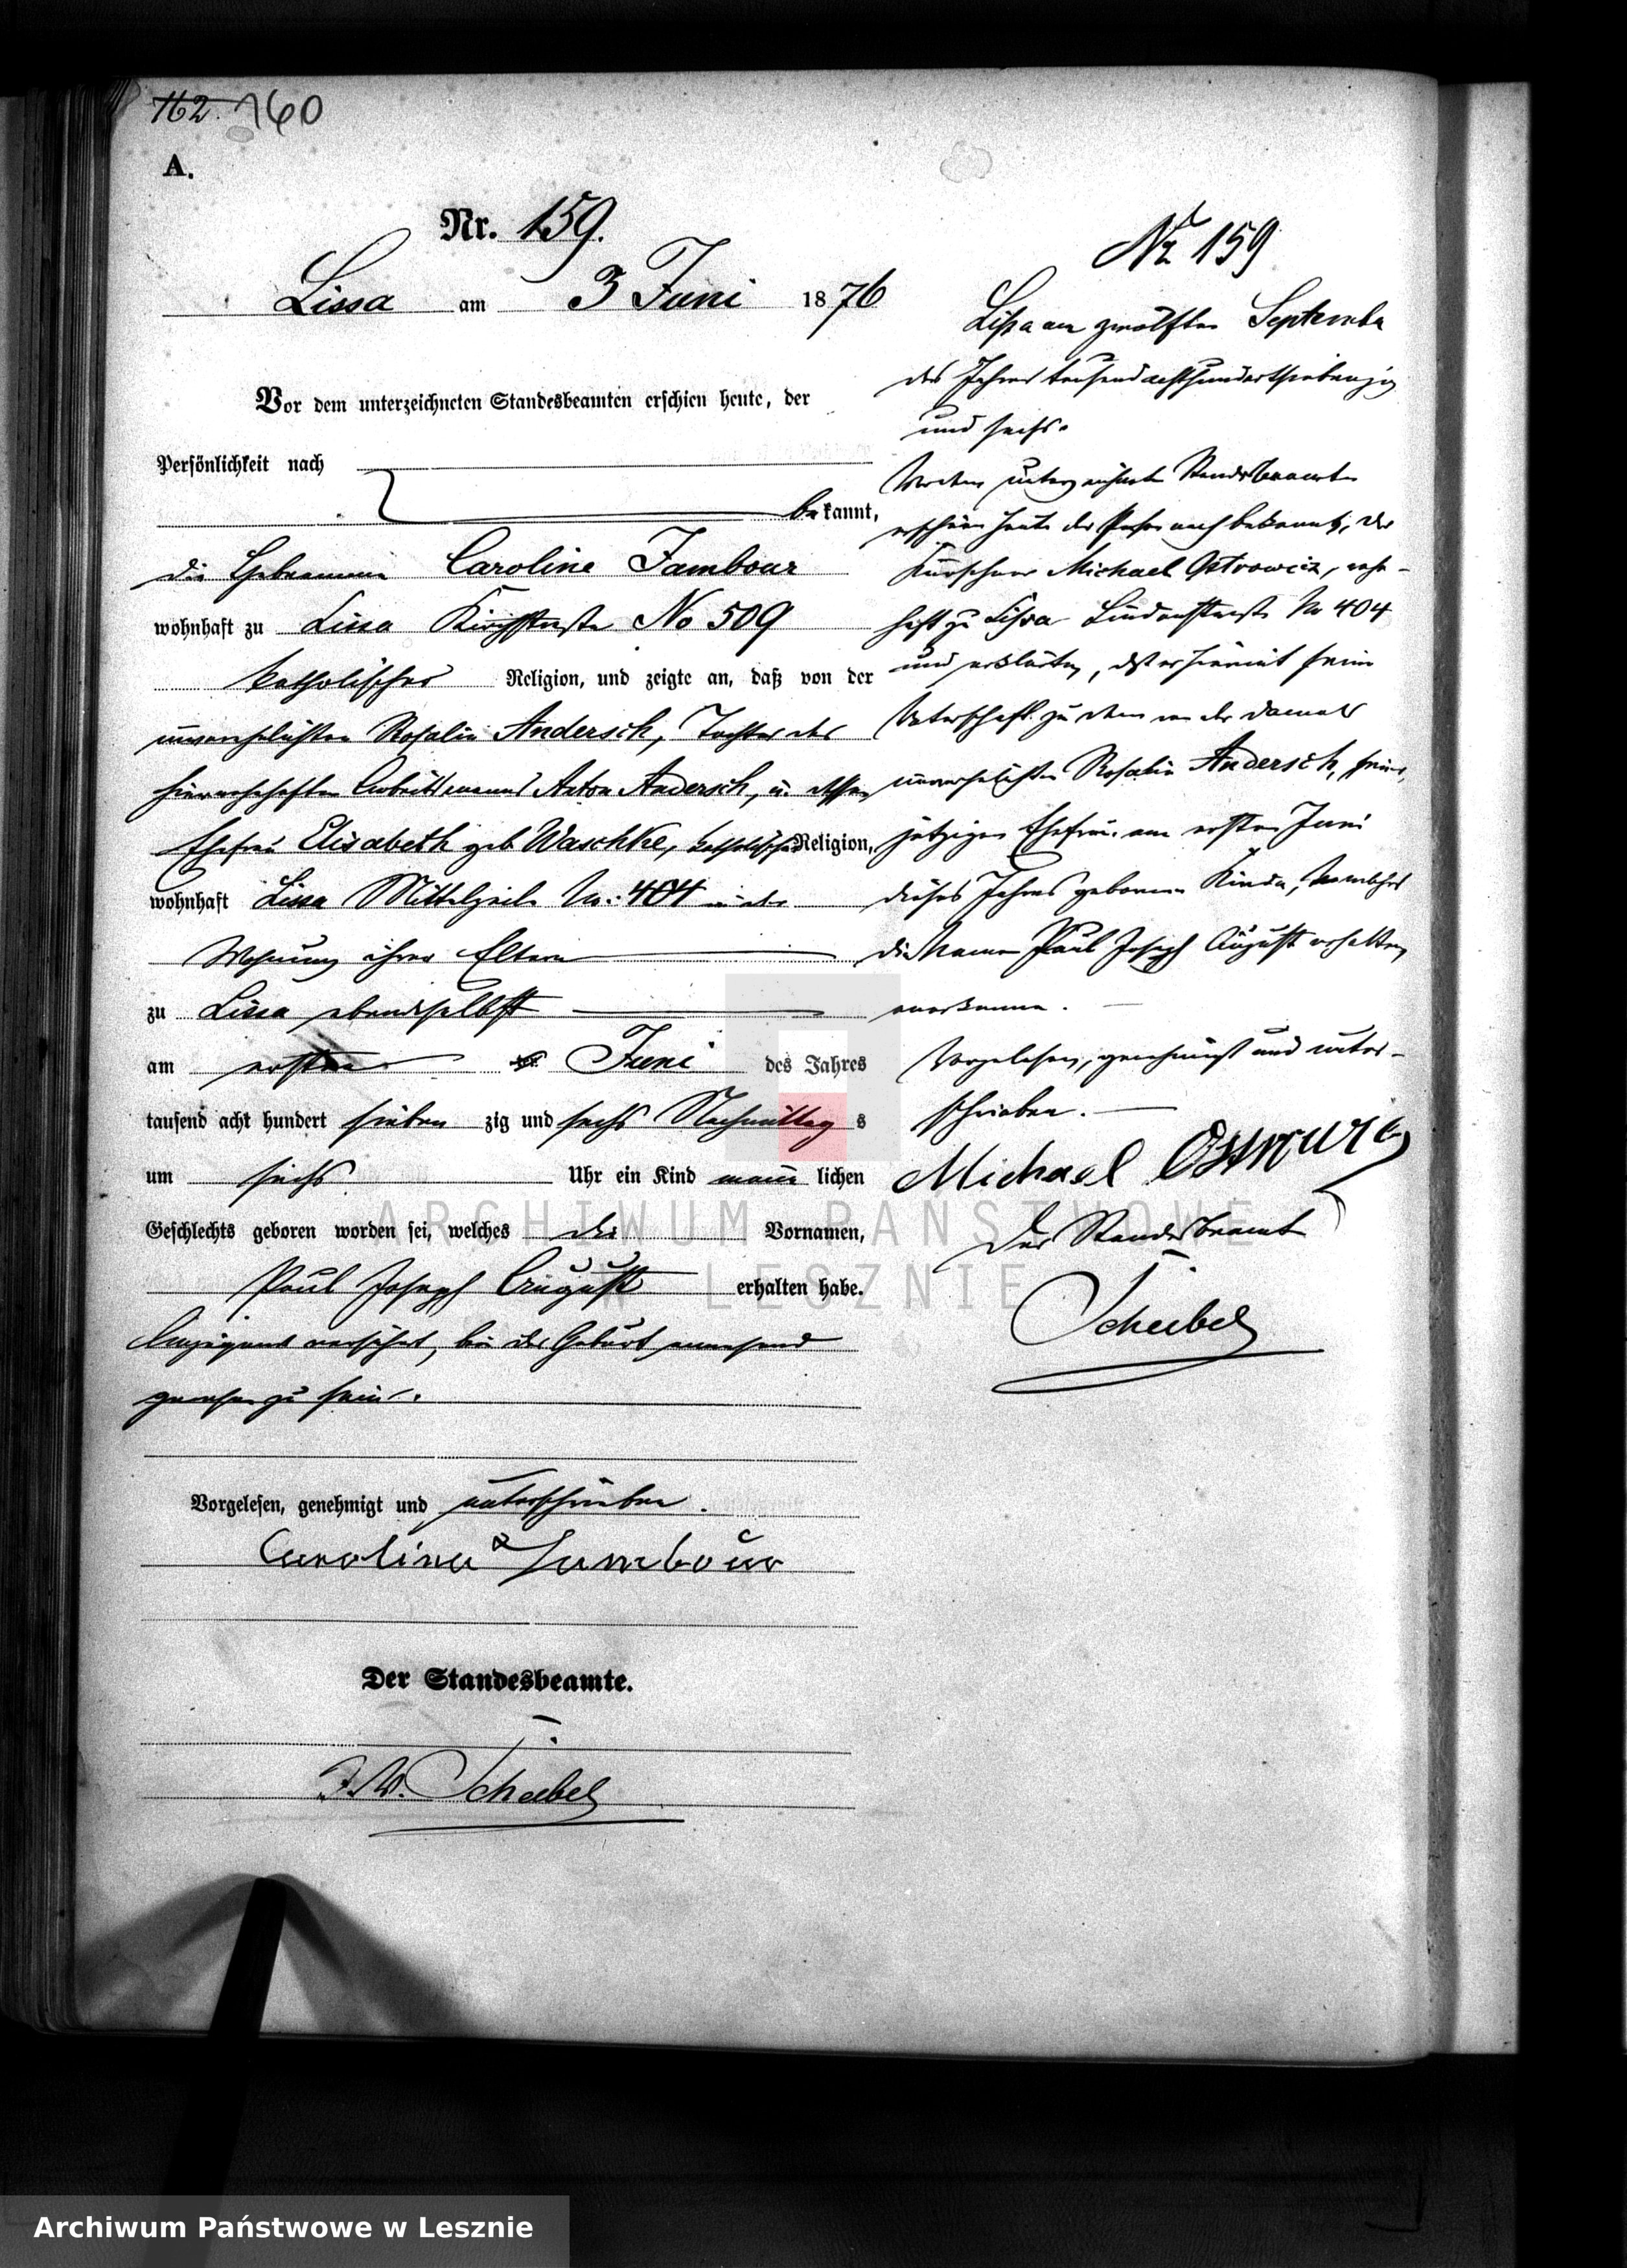 162. 160
A.
Nr. 159.
Lissa am 3 Juni 1876
Vor dem unterzeichneten Standesbeamten erschien heute, der
Persönlichkeit nach
bekannt,
die Hebeamme Caroline Jambour
wohnhaft zu Lissa No 509
katholischer Religion, und zeigte an, daß von der
unverehelichten Rosalie Andersch, Tochter des
hierwohnhaften Arbeitsmanns Anton Andersch, u. dessen
Ehefrau Elisabeth geb Waschke, katholischer Religion,
wohnhaft Lissa Mittelzeile No: 404 in der
Wohnung ihrer Eltern
zu Lissa ebendaselbst
am ersten ten Juni des Jahres
tausend acht hundert sieben zig und sechs Nachmittag s
um sechs Uhr ein Kind männ lichen
Geschlechts geboren worden sei, welches die Vornamen,
Paul Joseph August erhalten habe.
Anzeigende versichert, bei der Geburt anwesend
gewesen zu sein.
Vorgelesen, genehmigt und unterschrieben.
Caroline Jambour
Der Standesbeamte.
Scheibel
Nr 159
Lissa am zwölften September
des Jahres tausend achthundert siebenzig
und sechs.
Vor dem unterzeichneten Standesbeamten
erschien heute der Person nach bekannt, der
Kürschner Michael Ostrowicz, wohn-
haft zu Lissa Lindenstraße No 404
und erklärte, daß er hiermit seine
Vaterschaft zu dem von der damals
unverehelichten Rosalie Andersch, seiner
jetzigen Ehefrau am ersten Juni
dieses Jahres geborenen Kinde, welches
die Namen Paul Joseph August erhalten,
anerkenne.
Vorgelesen, genehmigt und unter-
schrieben.
Michael Ostrowicz
Der Standesbeamte
Scheibel
ARCHIWUM PAŃSTWOWE
W LESZNIE
Archiwum Państwowe w Lesznie